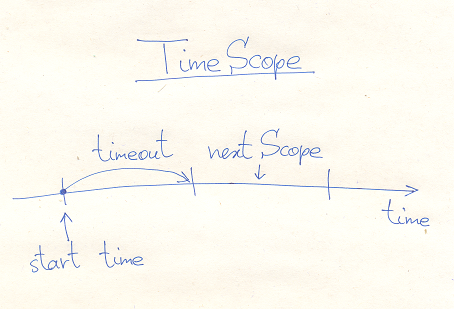 Time Scope
timeout next Scope
time
start time